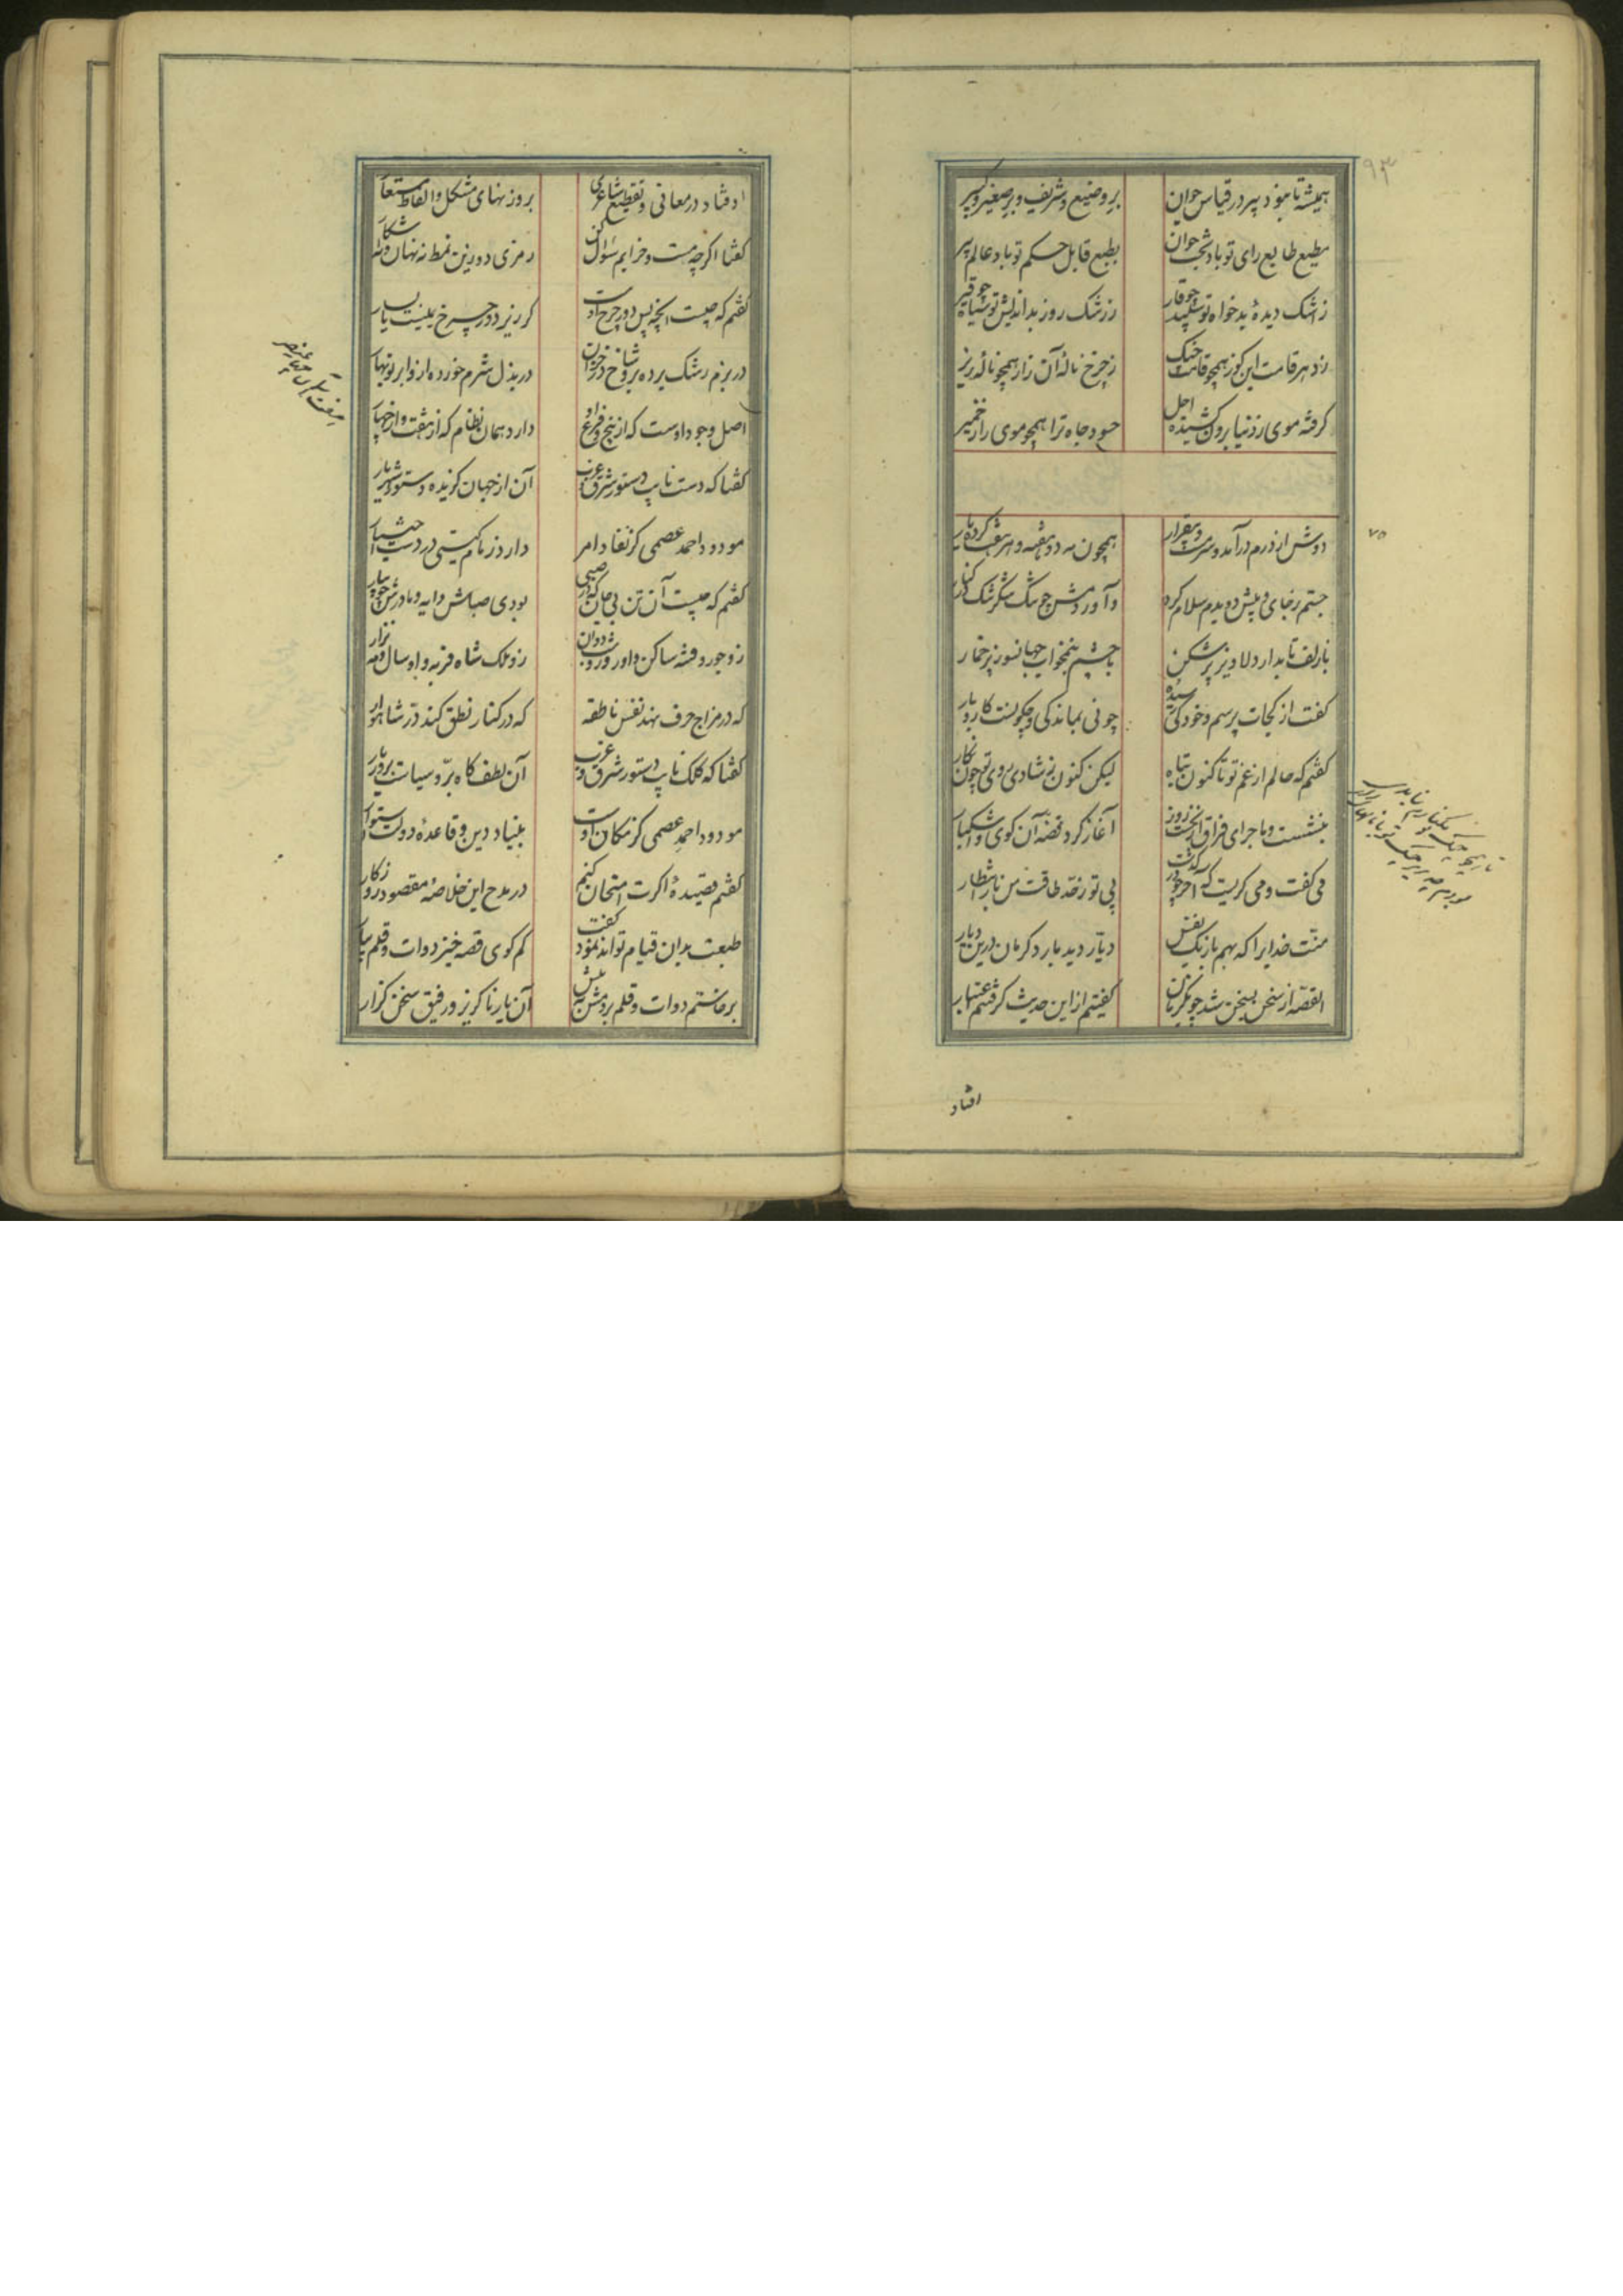 همیشه تا نبود پیر در قیاس جوان بر وضیع و شریف و بر صغیر و کبیر
مطیع طایع رای تو باد بخت جوان بطبع قابل حکم تو باد عالم پیر
ز اشک دیدهٔ بدخواه تو سپید چو قار ز رشک روز بداندیش تو سیاه چو قیر
ز دهر قامت این کوز همچو قامت چنک ز چرخ نالهٔ آن زار همچو نالهٔ زیر
گرفته موی ز دنیا برون کشیده اجل حسود جاه ترا همچو موی را ز خمیر
۷۵
دوش از درم درآمد و سرمست و بیقرار همچون مه دو هفته و هر هفت کرده یار
جستم ز جای و پیش دویدم سلام کرد و آوردمش چو تنگ شکر تنگ در کنار
با زلف تابدار دلاویز پر شکن با چشم نیمخواب جهانسوز پر خمار
گفت از کجات پرسم و خود کی رسیدهٔ چونی بماندگی و چگونست کار و بار
گفتم که حالم از غم تو تا کنون تباه لیکن کنون ز شادی روی تو چون نگار
بنشست و ماجرای فراق از نخست روز آغاز کرد قصهٔ آن گوی و اشکبار
می گفت و می گریست که آخر چو درگذشت بی تو ز حد طاقت من بار انتظار
منت خدایرا که بهم باز یک نفس دیار دید بار دگرمان درین دیار
القصه از سخن بسخن شد چو یکزمان گفتیم از این حدیث گرفتیم اعتبار
افتاد
افتاد در معانی و تقطیع شاعری بر وزنهای مشکل و الفاظ مستعار
گفتا اگر چه مست و خرابم سئوال کن رمزی دو زین نمط نه نهان و نه آشکار
گفتم که چیست آنچه پس دور چرخ اوست گر زیر دور چرخ یمینست یا یسار
در بزم رشک برده برو شاخ در خزان در بذل شرم خورده ازو ابر نوبهار
اصل وجود اوست که از پنج فرع او دارد همان نظام که از هفت و از چهار
گفتا که دست نایب دستور شرق و غرب آن از جهان گزیده و دستور شهریار
مودود احمد عصمی کز نفاذ امر دارد زمام گیتی در دست اختیار
گفتم که چیست آن تن بی جان که در صبی بودی صباش دایه و مادرش جویبار
زو جور و فتنه ساکن و او روز و شب دوان زو ملک شاه فربه و او سال و مه نزار
که در مزاج حرف نهد نفس ناطقه که در کنار نطق کند در شاهوار
گفتا که کلک نایب دستور شرق و غرب آن لطف گاه بر و سیاست بردبار
مودود احمد عصمی کز مکان اوست بنیاد دین و قاعدهٔ دولت استوار
گفتم قصیدهٔ اگرت امتحان کنم در مدح این خلاصهٔ مقصود روزگار
طبعت بدان قیام تواند نمود گفت کم گوی قصه خیز دوات و قلم بیار
برخاستم دوات و قلم بردمش به پیش آن یار ناگزیر و رفیق سخن گزار